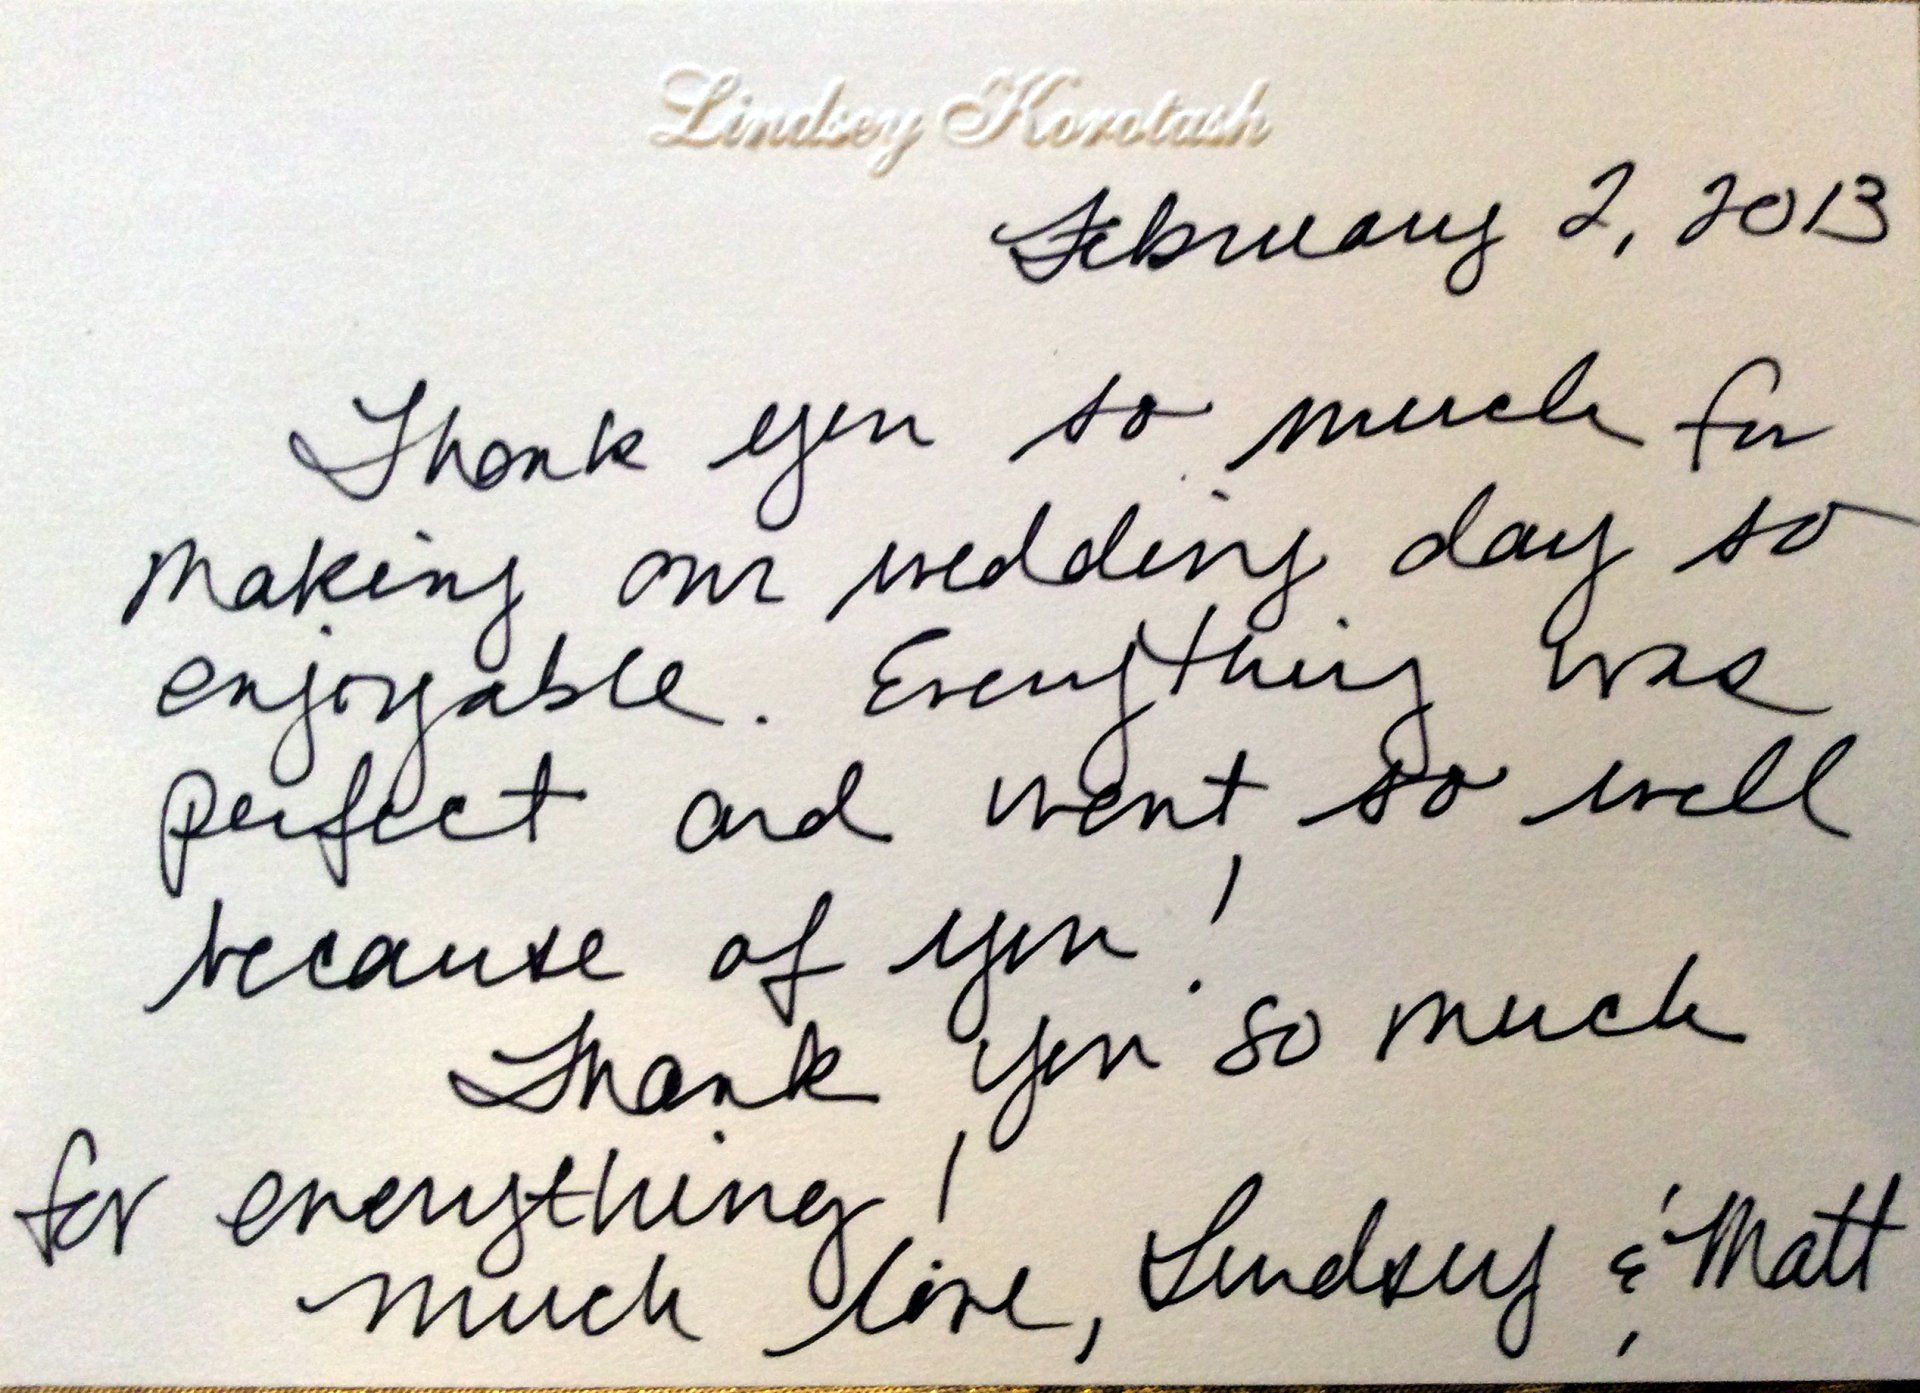 Lindsey Korotash
February 2, 2013
Thank you so much for
making our wedding day so
enjoyable. Everything was
perfect and went so well
because of you!
Thank you so much
for everything!
Much love, Lindsey & Matt